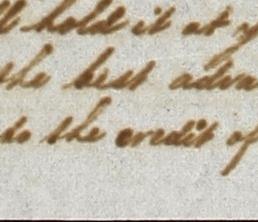 ll hold it at y
the best adva
to the credit of